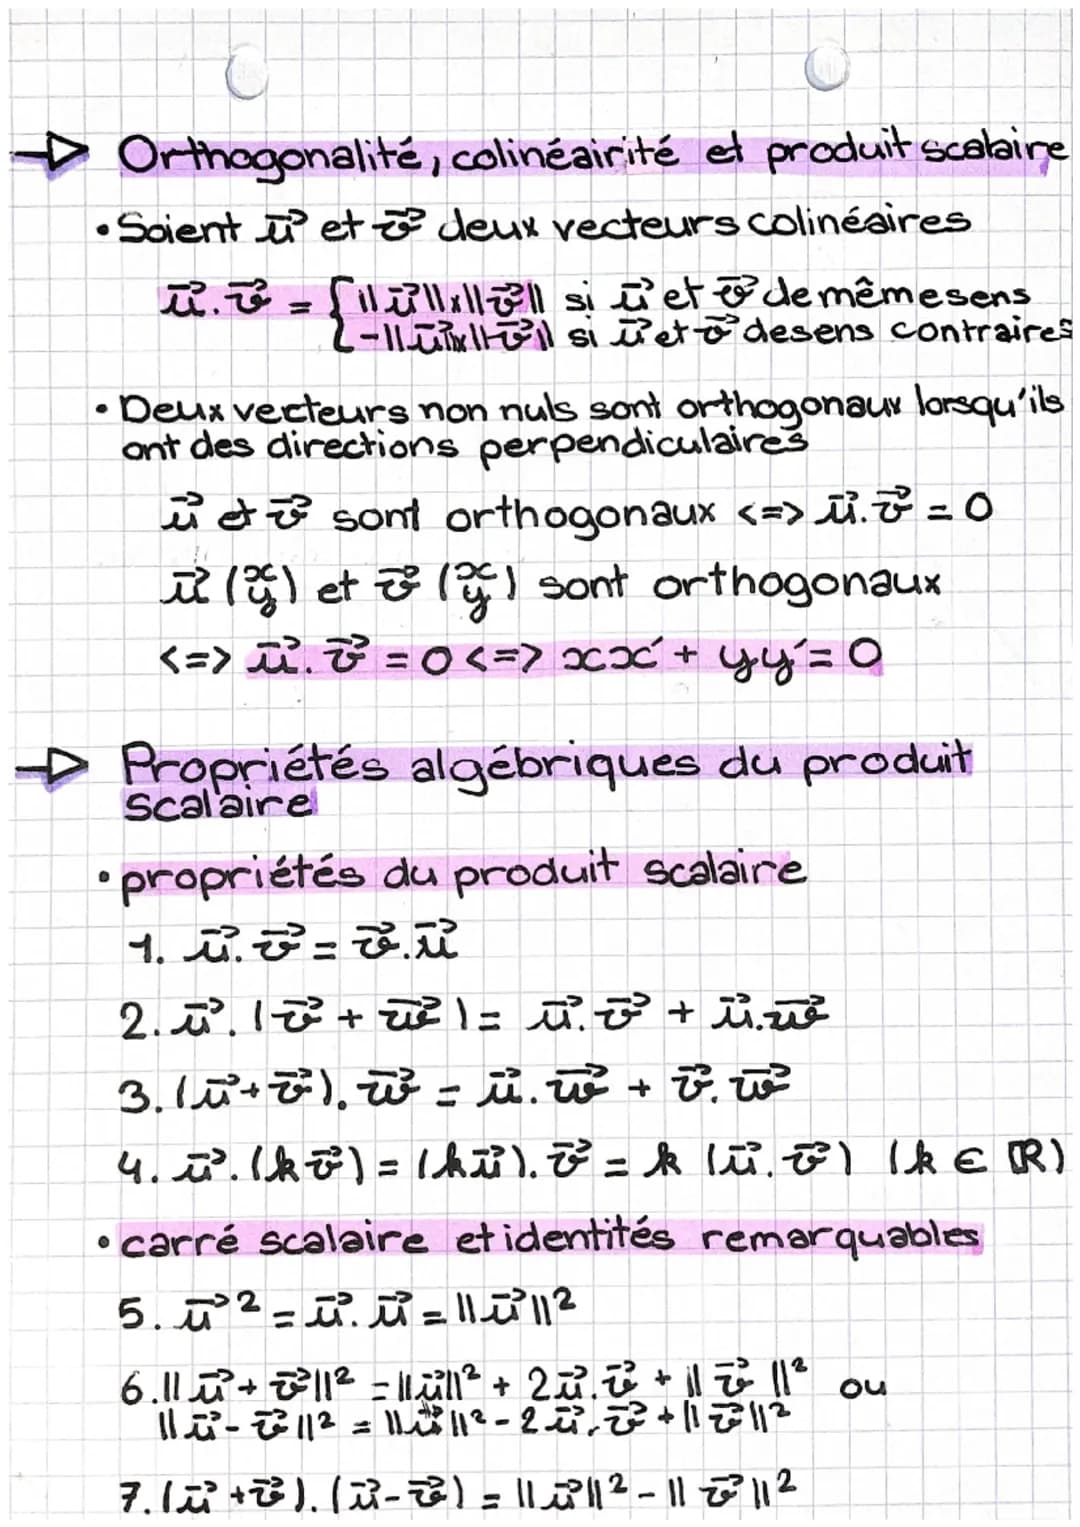 Orthogonalité, colinéairité et produit scalaire
• Soient u⃗ et v⃗ deux vecteurs colinéaires
u⃗.v⃗ = { ||u⃗||x||v⃗|| si u⃗ et v⃗ de même sens
-||u⃗||x||v⃗|| si u⃗ et v⃗ de sens contraires
• Deux vecteurs non nuls sont orthogonaux lorsqu'ils
ont des directions perpendiculaires
u⃗ et v⃗ sont orthogonaux <=> u⃗.v⃗ = 0
u⃗ (x y) et v⃗ (x y) sont orthogonaux
<=> u⃗.v⃗ = 0 <=> xx' + yy' = 0
Propriétés algébriques du produit
scalaire
• propriétés du produit scalaire
1. u⃗.v⃗ = v⃗.u⃗
2. u⃗.(v⃗ + w⃗) = u⃗.v⃗ + u⃗.w⃗
3. (u⃗ + v⃗).w⃗ = u⃗.w⃗ + v⃗.w⃗
4. u⃗.(kv⃗) = (ku⃗).v⃗ = k (u⃗.v⃗) (k ∈ ℝ)
• carré scalaire et identités remarquables
5. u⃗² = u⃗.u⃗ = ||u⃗||²
6. ||u⃗ + v⃗||² = ||u⃗||² + 2u⃗.v⃗ + ||v⃗||² ou
||u⃗ - v⃗||² = ||u⃗||² - 2u⃗.v⃗ + ||v⃗||²
7. (u⃗ + v⃗).(u⃗ - v⃗) = ||u⃗||² - ||v⃗||²